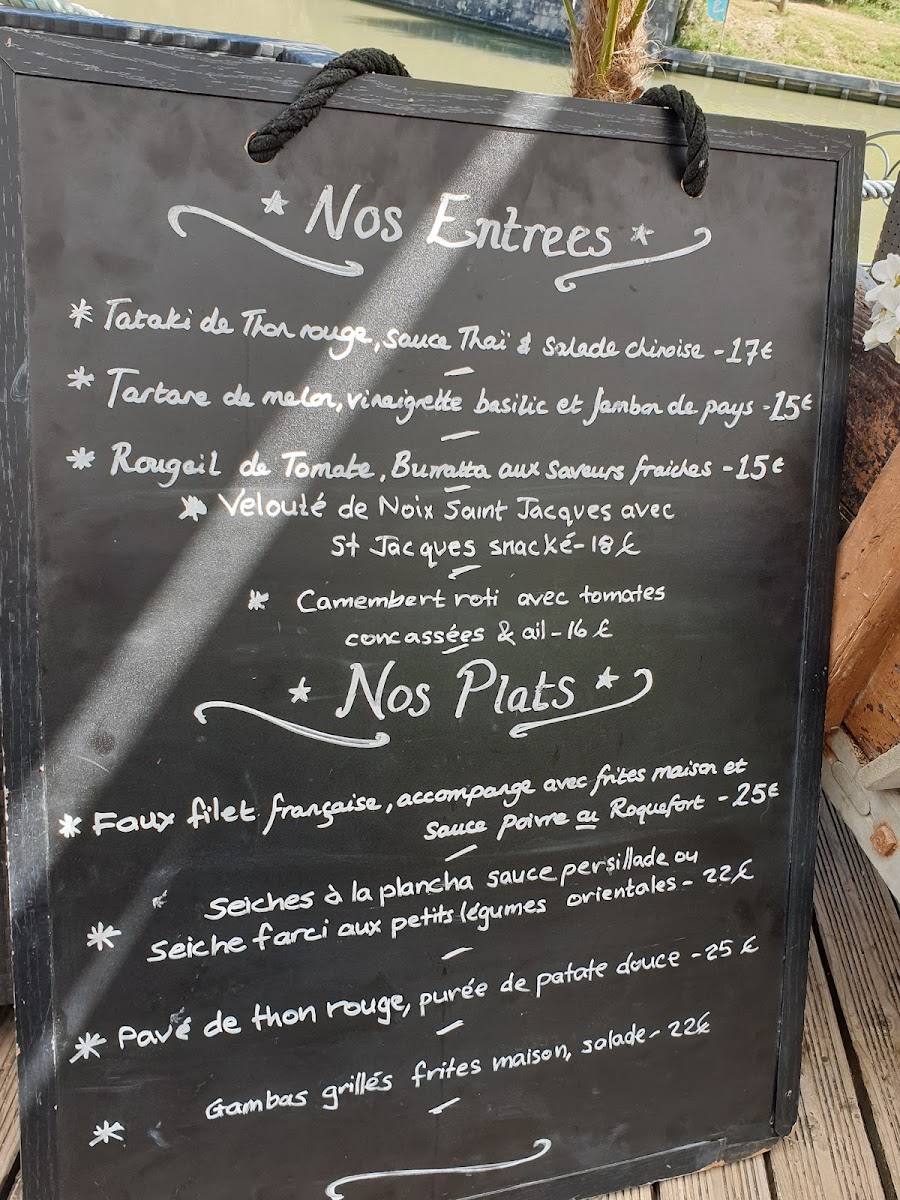 Nos Entrees
* Tataki de Thon rouge, sauce Thaï & salade chinoise - 17€
* Tartare de melon, vinaigrette basilic et Jambon de pays - 15€
* Rougeil de Tomate, Burratta aux saveurs fraiches - 15€
* Velouté de Noix Saint Jacques avec
St Jacques snacké - 18 €
* Camembert roti avec tomates
concassées & ail - 16 €
Nos Plats
* Faux filet française, accompange avec frites maison et
sauce Poivre au Roquefort - 25€
Seiches à la plancha sauce persillade ou
* seiche farci aux petits légumes orientales - 22€
* Pavé de thon rouge, purée de patate douce - 25 €
* Gambas grillés frites maison, salade - 22€